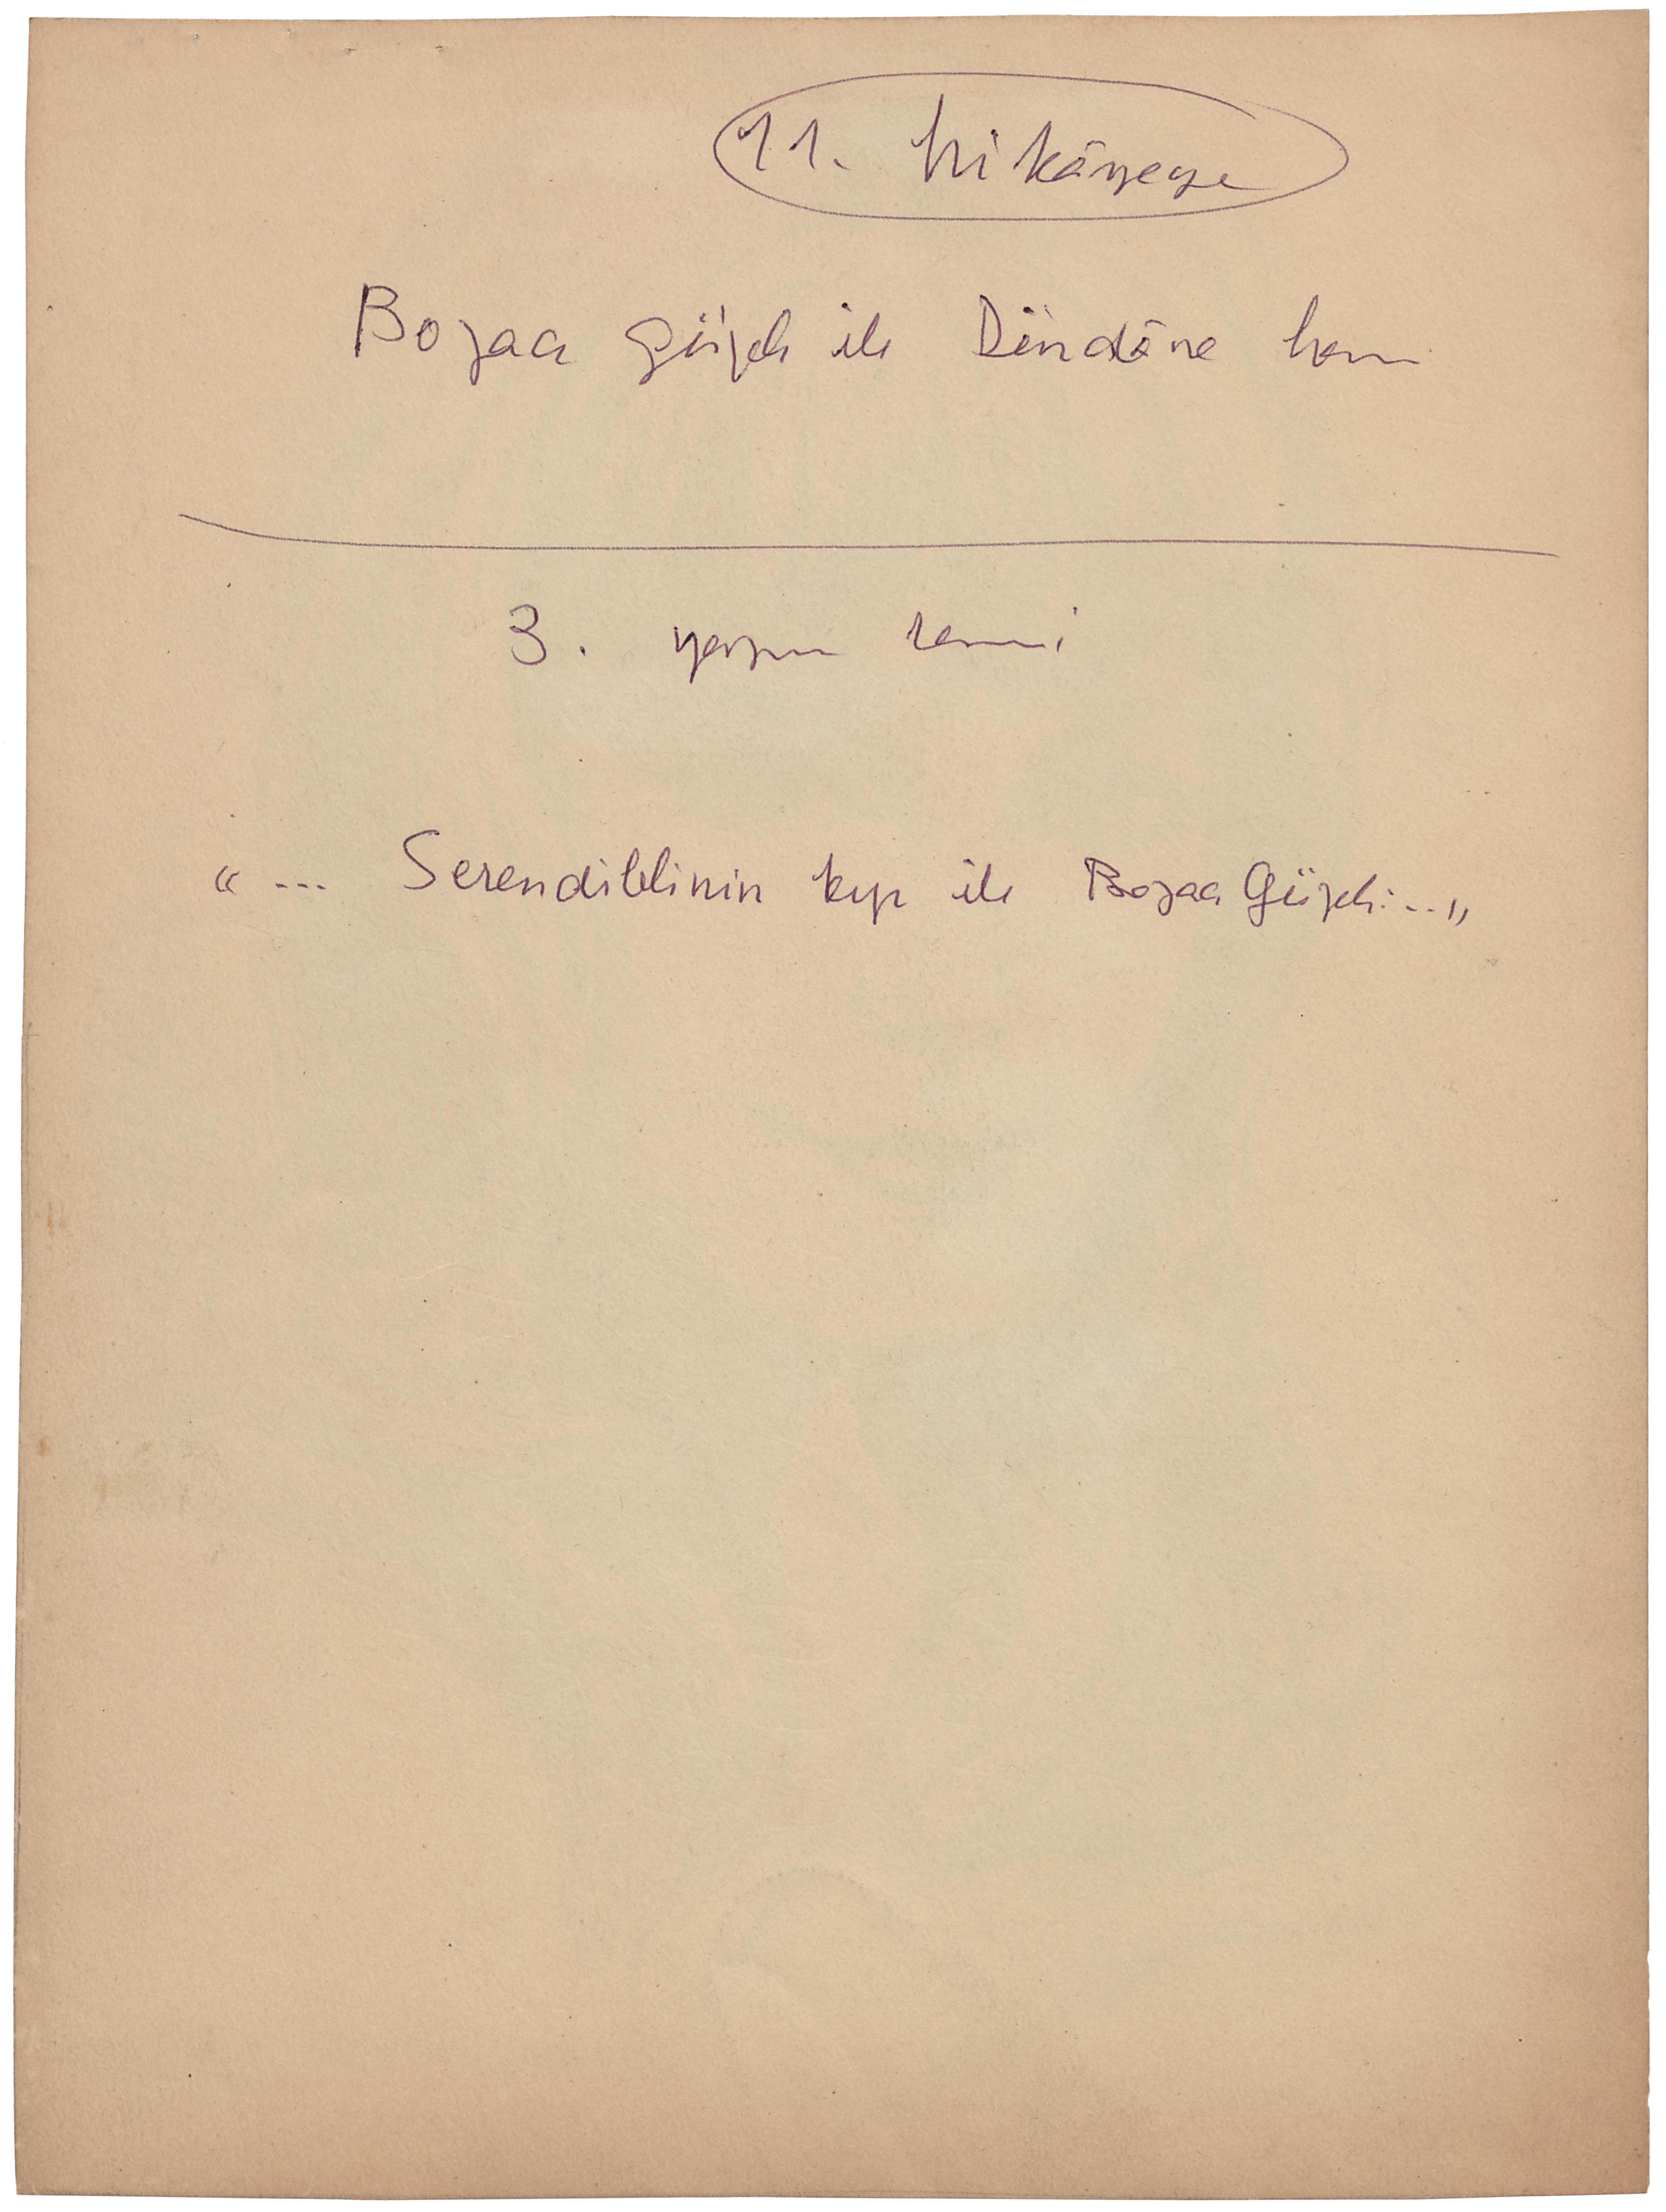 11. hikâyeye
Bozacı güzeli ile Dürdâne hanım
3. yazının resmi
“ ... Serendiblinin kızı ile Bozacı Güzeli ... „